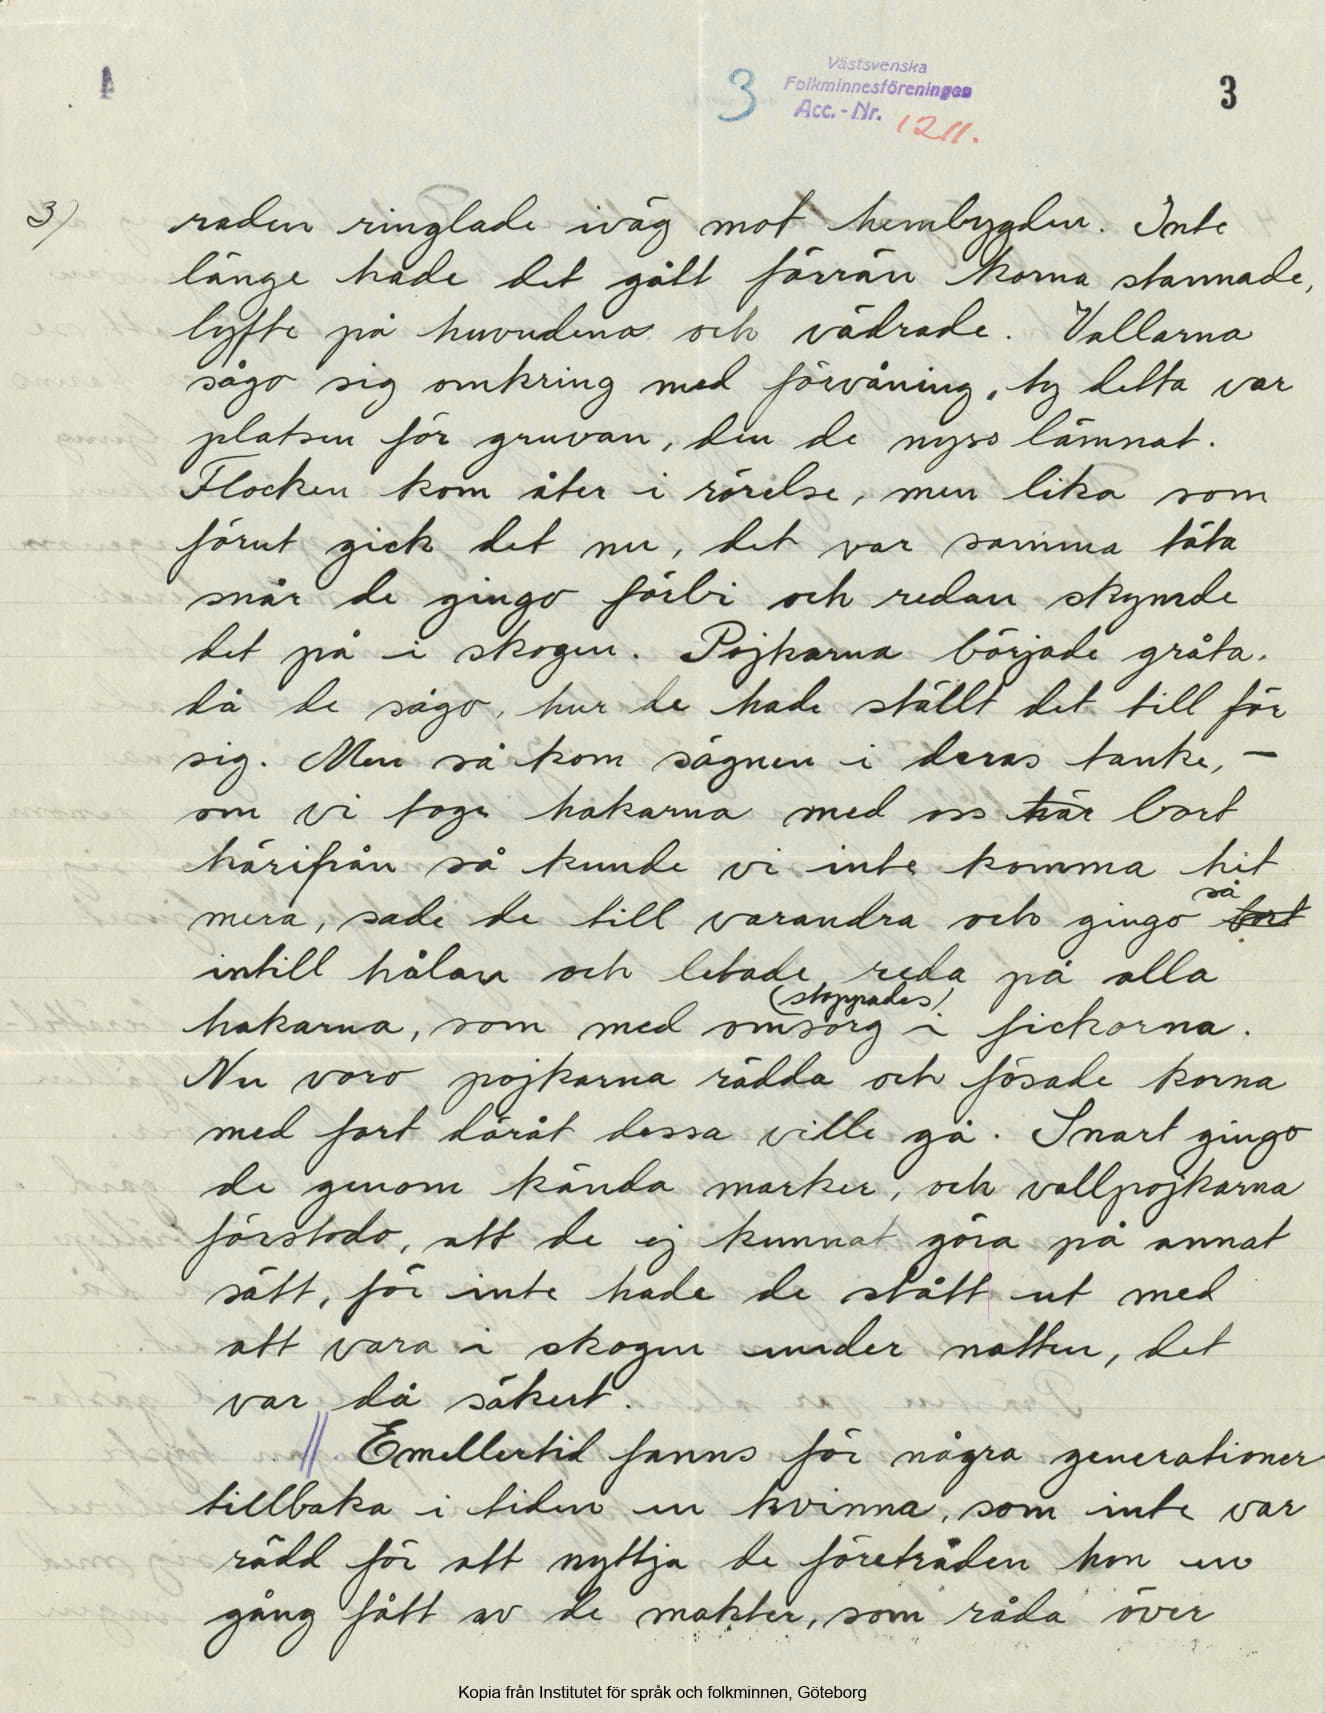 1
3
Västsvenska
Folkminnesföreningen
Acc.-Nr. 1211.
3
3)
raden ringlade iväg mot hembygden. Inte
länge hade det gått förrän korna stannade,
lyfte på huvudena och vädrade. Vallarna
sågo sig omkring med förvåning, ty detta var
platsen för gruvan, den de nyss lämnat.
Flocken kom åter i rörelse, men lika som
förut gick det nu, det var samma täta
snår de gingo förbi och redan skymde
det på i skogen. Pojkarna började gråta.
då de sågo, hur de hade ställt det till för
sig. Men så kom sägnen i deras tanke, –
om vi toge hakarna med oss här bort
härifrån så kunde vi inte komma hit
mera, sade de till varandra och gingo så bort
intill hålan och letade reda på alla
hakarna, som med omsorg (stoppades) i fickorna.
Nu voro pojkarna rädda och fösade korna
med fart däråt dessa ville gå. Snart gingo
de genom kända marker, och vallpojkarna
förstodo, att de ej kunnat göra på annat
sätt, för inte hade de stått ut med
att vara i skogen under natten, det
var då säkert.
// Emellertid fanns för några generationer
tillbaka i tiden en kvinna, som inte var
rädd för att nyttja de företräden hon en
gång fått av de makter, som råda över
Kopia från Institutet för språk och folkminnen, Göteborg